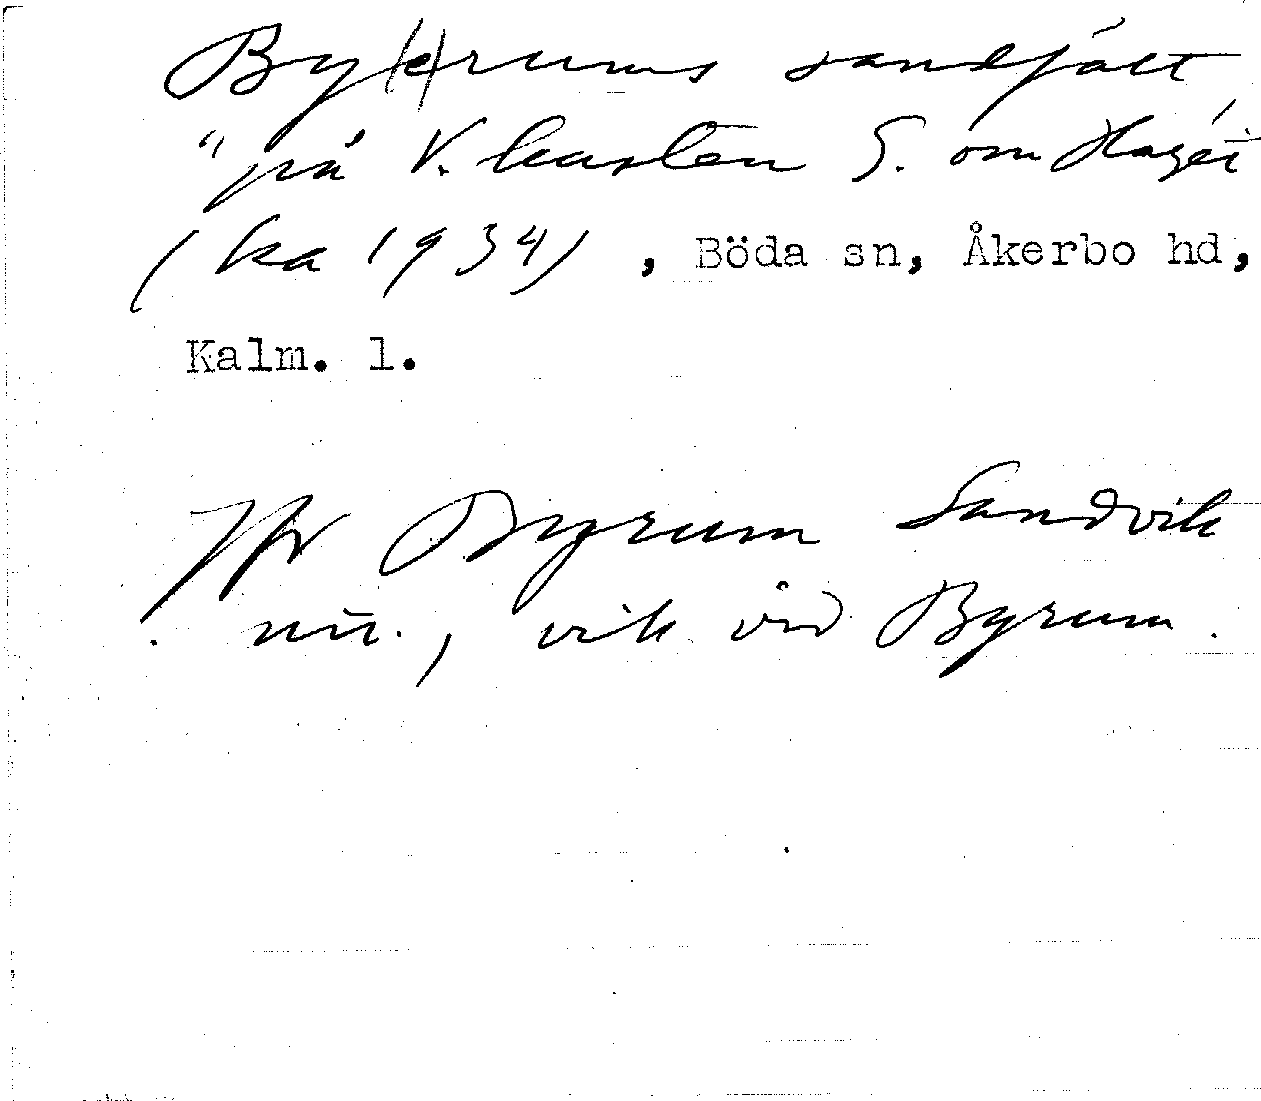 By(e)rums sandfält
"på V. kusten S. om Haget
(ka 1934), Böda sn, Åkerbo hd,
Kalm. l.
Jfr Byrum Sandvik
nu., vik vid Byrum.